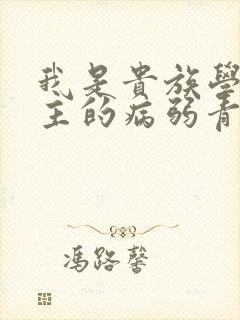 我是貴族學
主的病弱青
馮路馨